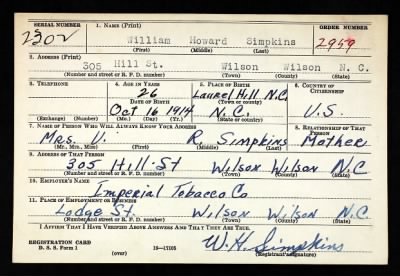 SERIAL NUMBER 1. NAME (Print) ORDER NUMBER
2302 William Howard Simpkins 2959
(First) (Middle) (Last)
2. ADDRESS (Print)
305 Hill St. Wilson Wilson N. C.
(Number and street or R. F. D. number) (Town) (County) (State)
3. TELEPHONE 4. AGE IN YEARS 5. PLACE OF BIRTH 6. COUNTRY OF CITIZENSHIP
26 Laurel Hill N.C.
DATE OF BIRTH (Town or county)
Oct 16 1914 N.C. U.S.
(Exchange) (Number) (Mo.) (Day) (Yr.) (State or country)
7. NAME OF PERSON WHO WILL ALWAYS KNOW YOUR ADDRESS 8. RELATIONSHIP OF THAT PERSON
Mrs. V. R. Simpkins Mother
(Mr., Mrs., Miss) (First) (Middle) (Last)
9. ADDRESS OF THAT PERSON
305 Hill St Wilson Wilson N.C
(Number and street or R. F. D. number) (Town) (County) (State)
10. EMPLOYER'S NAME
Imperial Tobacco Co
11. PLACE OF EMPLOYMENT OR BUSINESS
Lodge St. Wilson Wilson N.C.
(Number and street or R. F. D. number) (Town) (County) (State)
I AFFIRM THAT I HAVE VERIFIED ABOVE ANSWERS AND THAT THEY ARE TRUE.
REGISTRATION CARD
D. S. S. Form 1 16—17105 W. H. Simpkins
(Registrant's signature)